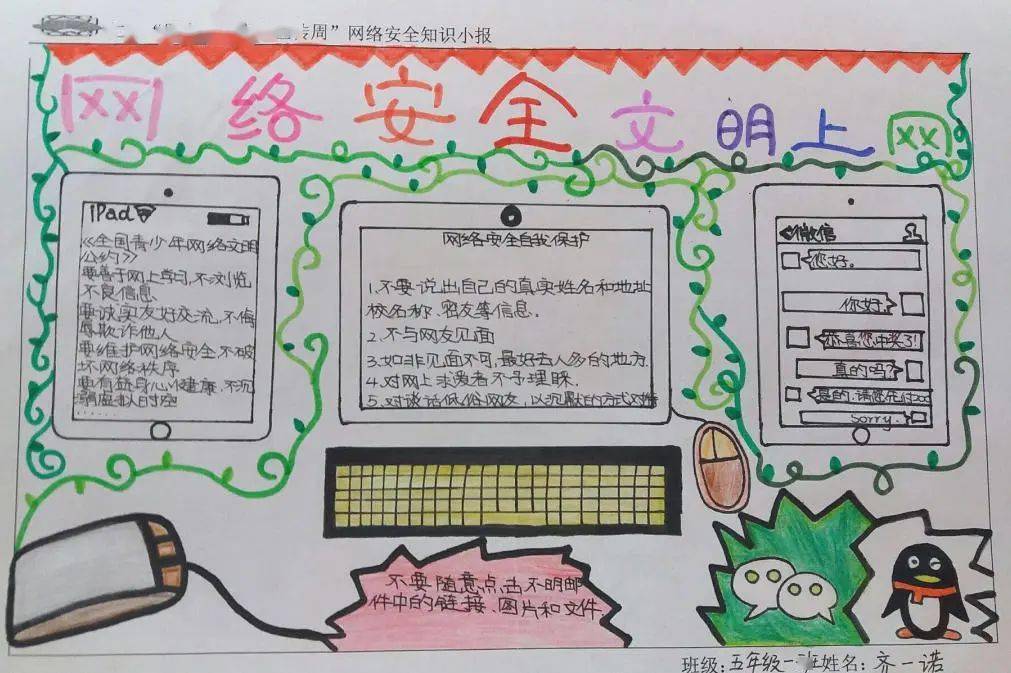 周”网络安全知识小报
网络安全文明上网
iPad
《全国青少年网络文明
公约》
要善于网上学习,不浏览
不良信息
要诚实友好交流,不侮
辱欺诈他人
要维护网络安全,不破
坏网络秩序
要有益身心健康,不沉
溺虚拟时空
......
网络安全自我保护
1.不要说出自己的真实姓名和地址
校名称、密友等信息.
2.不与网友见面
3.如非见面不可,最好去人多的地方.
4.对网上求爱者不予理睬.
5.对谈话低俗网友,以沉默的方式对待
<微信
您好。
你好.
恭喜您中奖了!
真的吗?
是的,请您先付200
sorry.
不要随意点击不明邮
件中的链接、图片和文件.
班级:五年级一班姓名:齐一诺